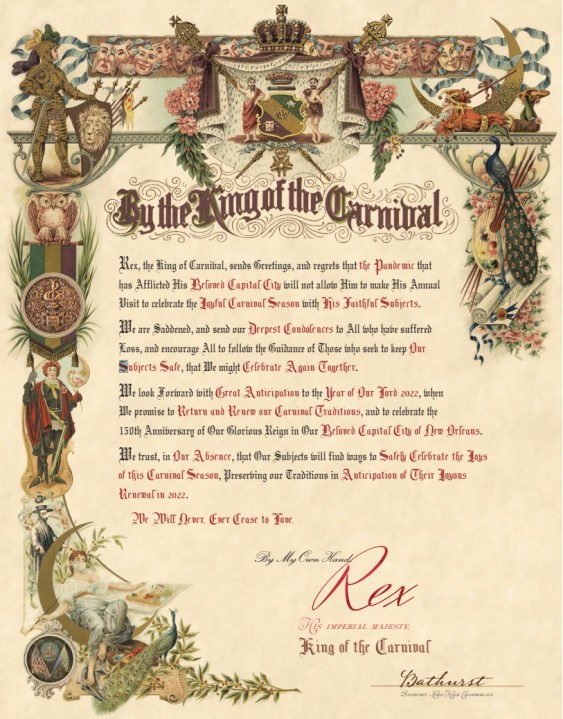 By the King of the Carnival
Rex, the King of Carnival, sends Greetings, and regrets that the Pandemic that
has Afflicted His Beloved Capital City will not allow Him to make His Annual
Visit to celebrate the Joyful Carnival Season with His Faithful Subjects.
We are Saddened, and send our Deepest Condolences to All who have suffered
Loss, and encourage All to follow the Guidance of Those who seek to keep Our
Subjects Safe, that We might Celebrate Again Together.
We look Forward with Great Anticipation to the Year of Our Lord 2022, when
We promise to Return and Renew our Carnival Traditions, and to celebrate the
150th Anniversary of Our Glorious Reign in Our Beloved Capital City of New Orleans.
We trust, in Our Absence, that Our Subjects will find ways to Safely Celebrate the Joys
of this Carnival Season, Preserving our Traditions in Anticipation of Their Joyous
Renewal in 2022.
We Will Never, Ever Cease to Love.
By My Own Hand,
Rex
His Imperial Majesty,
King of the Carnival
Bathurst
Bathurst, Lord High Chamberlain